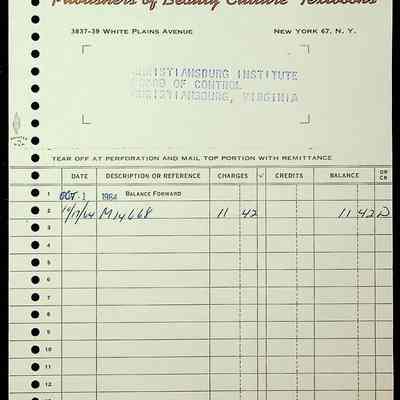 Publishers of Beauty Culture Textbooks
3837-39 WHITE PLAINS AVENUE NEW YORK 67, N. Y.
CHRISTIANSBURG INSTITUTE
BOARD OF CONTROL
CHRISTIANSBURG, VIRGINIA
TEAR OFF AT PERFORATION AND MAIL TOP PORTION WITH REMITTANCE
DATE DESCRIPTION OR REFERENCE CHARGES ✓ CREDITS BALANCE DR CR
1 OCT 1 1964 BALANCE FORWARD
2 10/17/64 M14668 11 42 11 42 D
3
4
5
6
7
8
9
10
11
12